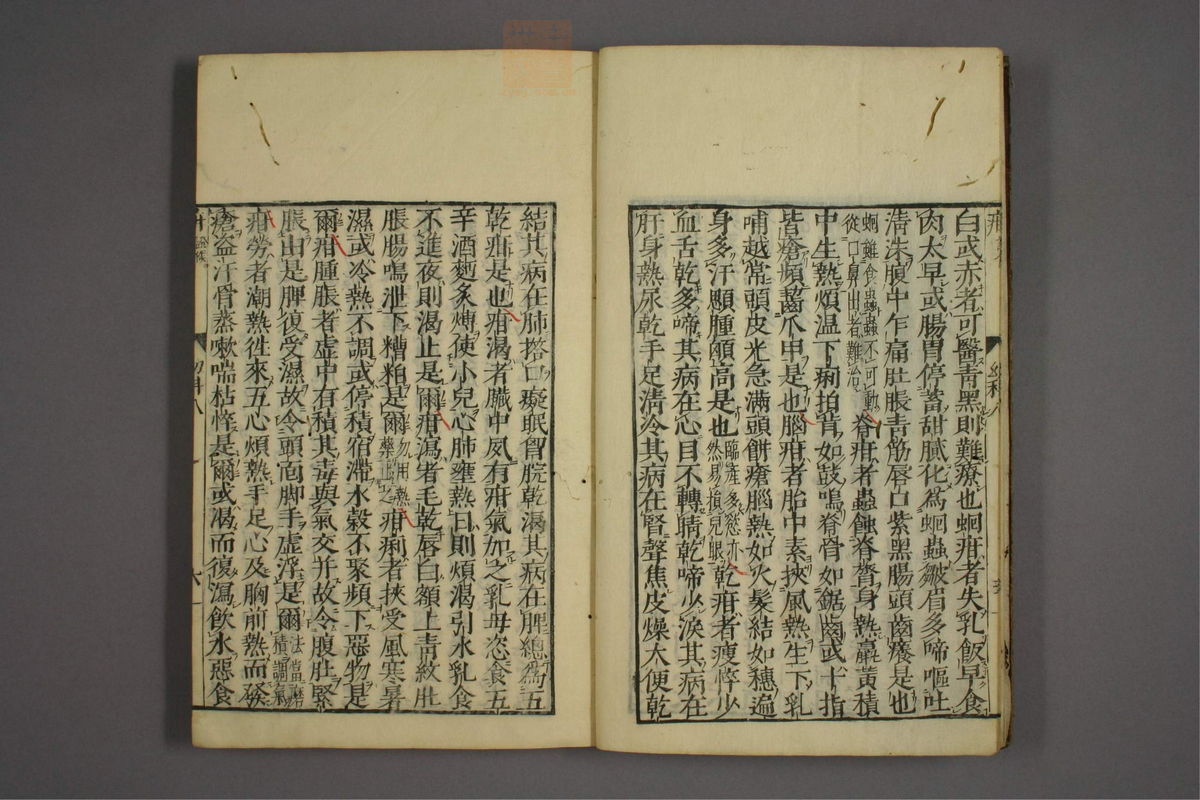 白或赤者可醫青黑則難療也蛔疳者失乳飯早食
肉太早或腸胃停蓄甜膩化為蛔蟲皺眉多啼嘔吐
清沫腹中乍痛肚脹青筋唇口紫黑腸頭齒癢是也
蛔雖食蟲蟲不可動從口鼻出者難治脊疳者蟲蝕脊膂身熱羸黃積
中生熱煩温下痢拍背如鼓鳴脊骨如鋸齒或十指
皆瘡頻齧爪甲是也腦疳者胎中素挾風熱生下乳
哺越常頭皮光急滿頭餅瘡腦熱如火髮結如穗遍
身多汗顋腫顖高是也臨產多慾亦然易損兒眼乾疳者瘦悴少
血舌乾多啼其病在心目不轉睛乾啼少淚其病在
肝身熱尿乾手足清冷其病在腎聲焦皮燥大便乾
結其病在肺搭口癡眠胷脘乾渴其病在脾總為五
乾疳是也疳渴者臟中夙有疳氣加之乳母恣食五
辛酒麪炙煿使小兒心肺壅熱日則煩渴引水乳食
不進夜則渴止是爾疳瀉者毛乾唇白額上青紋肚
脹腸鳴泄下糟粕是爾勿用熱藥止之疳痢者挾受風寒暑
濕或冷熱不調或停積宿滯水穀不聚頻下惡物是
爾疳腫脹者虛中有積其毒與氣交并故令腹肚緊
脹由是脾復受濕故令頭面脚手虛浮是爾法當磨積調氣
疳勞者潮熱徃來五心煩熱手足心及胸前熱而發
瘡盜汗骨蒸嗽喘枯悴是爾或渴而復瀉飲水惡食
幼科八